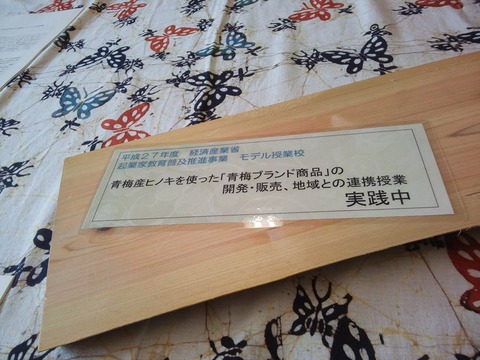 平成27年度　経済産業省
起業家教育普及推進事業　モデル授業校
青梅産ヒノキを使った「青梅ブランド商品」の
開発・販売、地域との連携授業
実践中